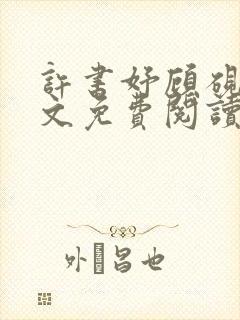 許書妤顧硯
文免費閱讀
外昌也